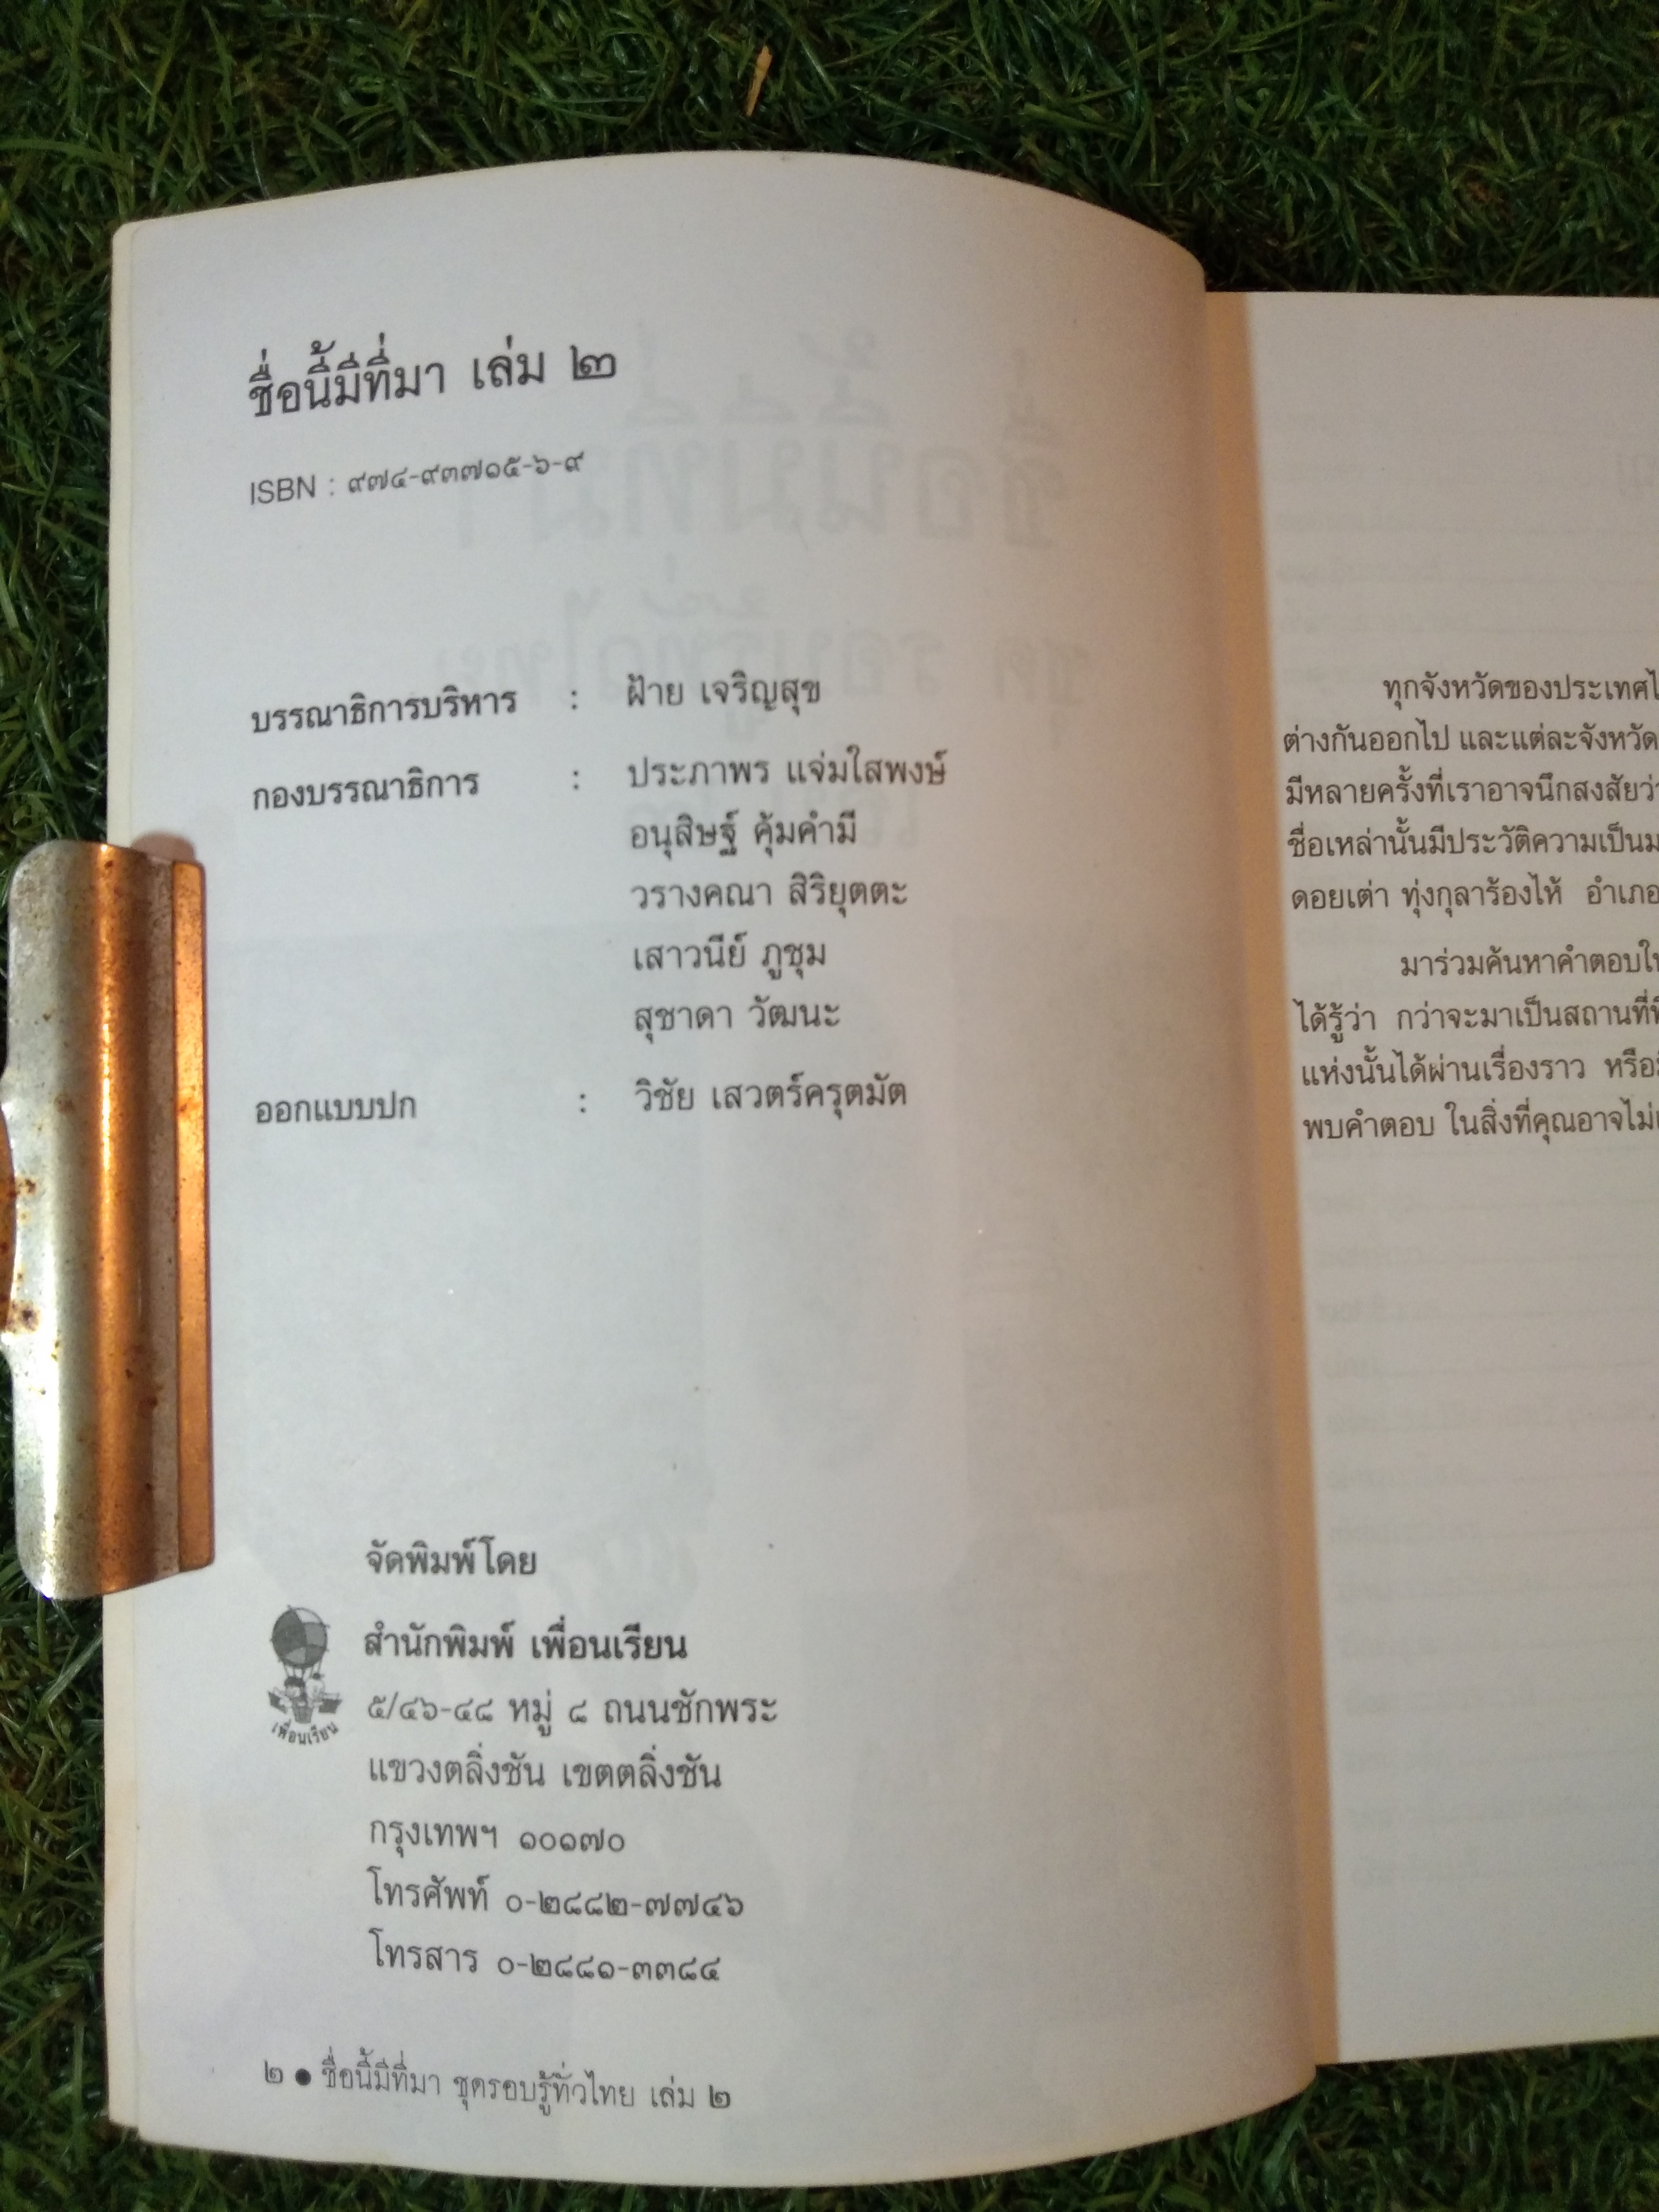 ชื่อนี้มีที่มา เล่ม ๒
ISBN : ๙๗๔-๙๓๗๑๕-๖-๙
บรรณาธิการบริหาร : ฝ้าย เจริญสุข
กองบรรณาธิการ : ประภาพร แจ่มใสพงษ์
อนุสิษฐ์ คุ้มคำมี
วรางคณา สิริยุตตะ
เสาวนีย์ ภูชุม
สุชาดา วัฒนะ
ออกแบบปก : วิชัย เสวตร์ครุตมัต
จัดพิมพ์โดย
สำนักพิมพ์ เพื่อนเรียน
เพื่อนเรียน
๕/๔๖-๔๘ หมู่ ๘ ถนนชักพระ
แขวงตลิ่งชัน เขตตลิ่งชัน
กรุงเทพฯ ๑๐๑๗๐
โทรศัพท์ ๐-๒๘๘๒-๗๗๔๖
โทรสาร ๐-๒๘๘๑-๓๓๘๔
๒ ● ชื่อนี้มีที่มา ชุดรอบรู้ทั่วไทย เล่ม ๒
ทุกจังหวัดของประเทศ
ต่างกันออกไป และแต่ละจังหวัด
มีหลายครั้งที่เราอาจนึกสงสัยว่า
ชื่อเหล่านั้นมีประวัติความเป็น
ดอยเต่า ทุ่งกุลาร้องไห้ อำเภอ
มาร่วมค้นหาคำตอบ
ได้รู้ว่า กว่าจะมาเป็นสถานที่
แห่งนั้นได้ผ่านเรื่องราว หรือ
พบคำตอบ ในสิ่งที่คุณอาจไม่